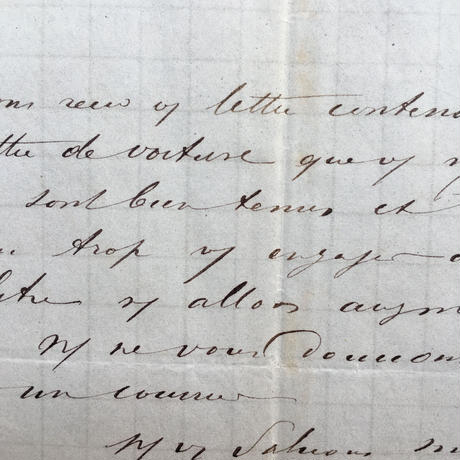 ons recu vs lettre contena
ttre de voiture que vs n
sont bien tenus et
trop vs engager
ns allons augm
Ns ne vous donnons
un courrier
Ns vs Saluons